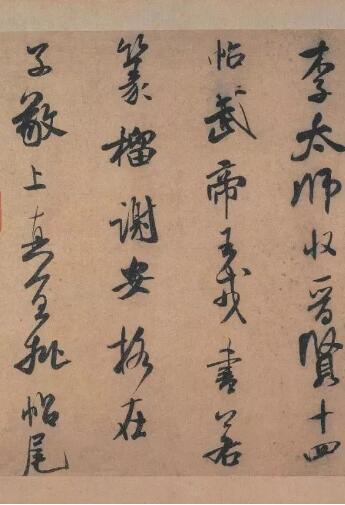 李太師收晉賢十四
帖武帝王戎書若
篆籀謝安格在
子敬上真宜批帖尾